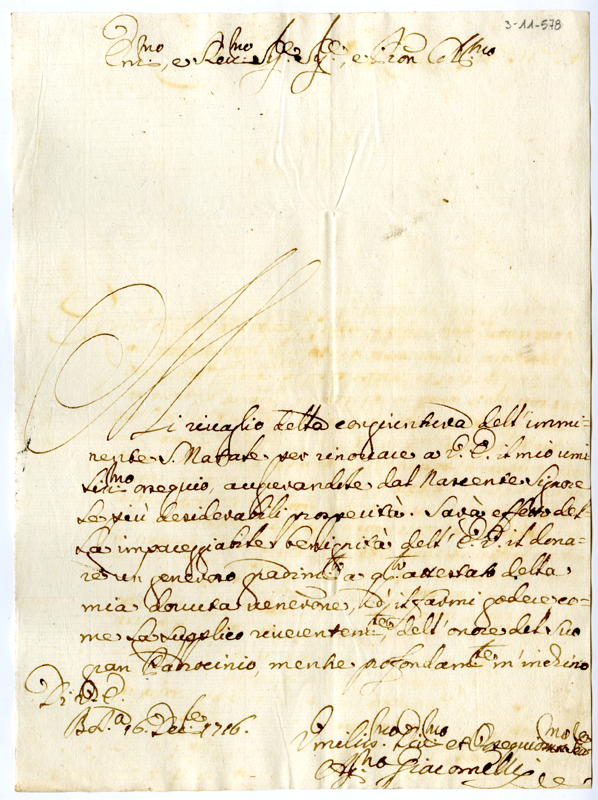 3-11-578
Em.mo, e Rev.mo Sig.re Sig.re, e Pron Coll.mo
Mi rivaglio della congiuntura dell'immi=
nente S. Natale per rinouare a V. E. il mio umi
liss.mo ossequio, augurandole dal Nascente Signore
le più desiderabili prosperità. Sarà effetto del=
la impareggiabile benignità dell'E. V. il dona=
re un generoso gradim.to a q.sto attestato della
mia douuta uenerõne, ed il farmi godere co=
me la supplico riuerentem.te, dell'onore del suo
gran Patrocinio, mentre profondam.te m'inchino
Di V. E.
Bol.a 16. Dec.re 1716.
Vmiliss.mo Deu.mo et Ossequios.mo Se.re
Giacomelli